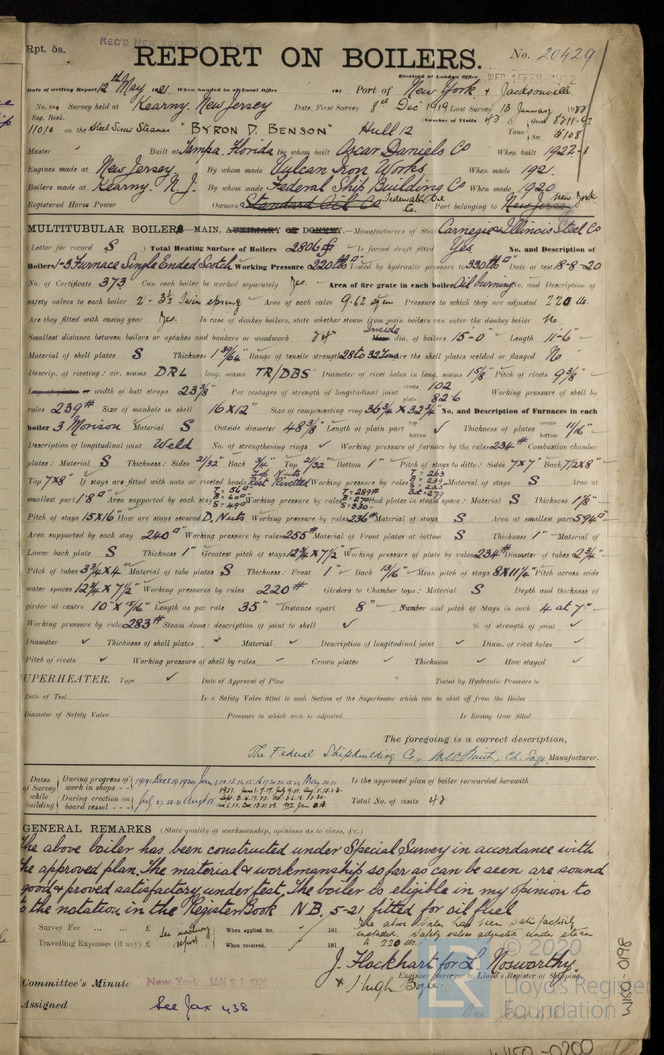 Rpt. 5a.
REC'D NEW YORK
REPORT ON BOILERS.
No. 20429
Received at London Office
WED. 1 FEB 1922
Date of writing Report 12th May 1921 When handed in at Local Office 191 Port of New York & Jacksonville
No. in Survey held at Kearny, New Jersey Date, First Survey 8th Dec 1919 Last Survey 13 January 1922
Reg. Book.
(Number of Visits 48 Gross 8211.92
11010 on the Steel Screw Steamer "BYRON D. BENSON" Hull 12 Tons Net 5108
Master Built at Tampa, Florida By whom built Oscar Daniels Co When built 1922-1
Engines made at New Jersey By whom made Vulcan Iron Works When made 1921.
Boilers made at Kearny, N.J. By whom made Federal Ship Building Co When made 1920
Registered Horse Power Owners Standard Oil Co Tidewater Oil Co. Port belonging to New Jersey New York
MULTITUBULAR BOILERS MAIN, AUXILIARY OR DONKEY.—Manufacturers of Steel Carnegie & Illinois Steel Co
Letter for record S Total Heating Surface of Boilers 2806 # Is forced draft fitted Yes No. and Description of
Boilers 1-3 Furnace Single Ended Scotch Working Pressure 220 lbs Tested by hydraulic pressure to 330 lbs Date of test 18-8-20
No. of Certificate 373 Can each boiler be worked separately Yes. Area of fire grate in each boiler Oil burning No. and Description of
safety valves to each boiler 2 - 3½ Twin spring Area of each valve 9.62 sq in Pressure to which they are adjusted 220 lbs.
Are they fitted with easing gear Yes. In case of donkey boilers, state whether steam from main boilers can enter the donkey boiler No.
Smallest distance between boilers or uptakes and bunkers or woodwork 24" Inside dia. of boilers 15'-0" Length 11'-6"
Material of shell plates S Thickness 1 39/64 Range of tensile strength 28 to 32 Tons Are the shell plates welded or flanged No
Descrip. of riveting: cir. seams DRL long. seams TR/DBS Diameter of rivet holes in long. seams 1⅝" Pitch of rivets 9⅜"
Lap of plates or width of butt straps 23⅜" Per centages of strength of longitudinal joint rivets 102 plate 82.6 Working pressure of shell by
rules 239# Size of manhole in shell 16 X 12" Size of compensating ring 36¾ X 32¾" No. and Description of Furnaces in each
boiler 3 Morison Material S Outside diameter 48⅜" Length of plain part top bottom ✓ Thickness of plates crown bottom 11/16"
Description of longitudinal joint Weld No. of strengthening rings ✓ Working pressure of furnace by the rules 234# Combustion chamber
plates: Material S Thickness: Sides 21/32" Back ¾" Top 21/32" Bottom 1" Pitch of stays to ditto: Sides 7" X 7" Back 7½ X 8"
Top 7" X 8" If stays are fitted with nuts or riveted heads Working pressure by rules Material of stays S Area at
smallest part 1·8 Area supported by each stay Working pressure by rules End plates in steam space: Material S Thickness 1⅛"
Pitch of stays 15 X 16" How are stays secured D. Nuts Working pressure by rules 236# Material of stays S Area at smallest part 5940
Area supported by each stay 240 Working pressure by rules 255# Material of Front plates at bottom S Thickness 1" Material of
Lower back plate S Thickness 1" Greatest pitch of stays 12¾ X 7½ Working pressure of plate by rules 234# Diameter of tubes 2¾"
Pitch of tubes 3¾ X 4" Material of tube plates S Thickness: Front 1" Back 13/16" Mean pitch of stays 8 X 11¼" Pitch across wide
water spaces 12¾ X 7½" Working pressures by rules 220# Girders to Chamber tops: Material S Depth and thickness of
girder at centre 10" X 15/16" Length as per rule 35" Distance apart 8" Number and pitch of Stays in each 4 at 7"
Working pressure by rules 283# Steam dome: description of joint to shell ✓ % of strength of joint ✓
Diameter ✓ Thickness of shell plates ✓ Material ✓ Description of longitudinal joint ✓ Diam. of rivet holes ✓
Pitch of rivets ✓ Working pressure of shell by rules ✓ Crown plates ✓ Thickness ✓ How stayed ✓
UPERHEATER. Type ✓ Date of Approval of Plan Tested by Hydraulic Pressure to
Date of Test Is a Safety Valve fitted to each Section of the Superheater which can be shut off from the Boiler
Diameter of Safety Valve Pressure to which each is adjusted Is Easing Gear fitted
The foregoing is a correct description,
The Federal Shipbuilding Co, Ch. Eng. Manufacturer.
Dates of Survey while building
During progress of work in shops - -
Is the approved plan of boiler forwarded herewith
During erection on board vessel - - -
Total No. of visits 48
GENERAL REMARKS (State quality of workmanship, opinions as to class, &c.)
The above boiler has been constructed under Special Survey in accordance with
the approved plan. The material & workmanship so far as can be seen are sound
good & proved satisfactory under test, The boiler is eligible in my opinion to
the notation in the Register Book NB, 5-21 fitted for oil fuel
Survey Fee ... ... £ see machinery report When applied for, 191
The above boiler has been satisfactorily installed. Safety valves adjusted under steam to 220 lbs.
Travelling Expenses (if any) £ When received, 191
J. Hockhart for L. Nosworthy.
Engineer Surveyor to Lloyd's Register of Shipping
& Hugh Boyle
Committee's Minute New York JAN 31 1922
Assigned See Jax 438
© 2020
Lloyd's Register
Foundation
W1150-0198
W1150-0200